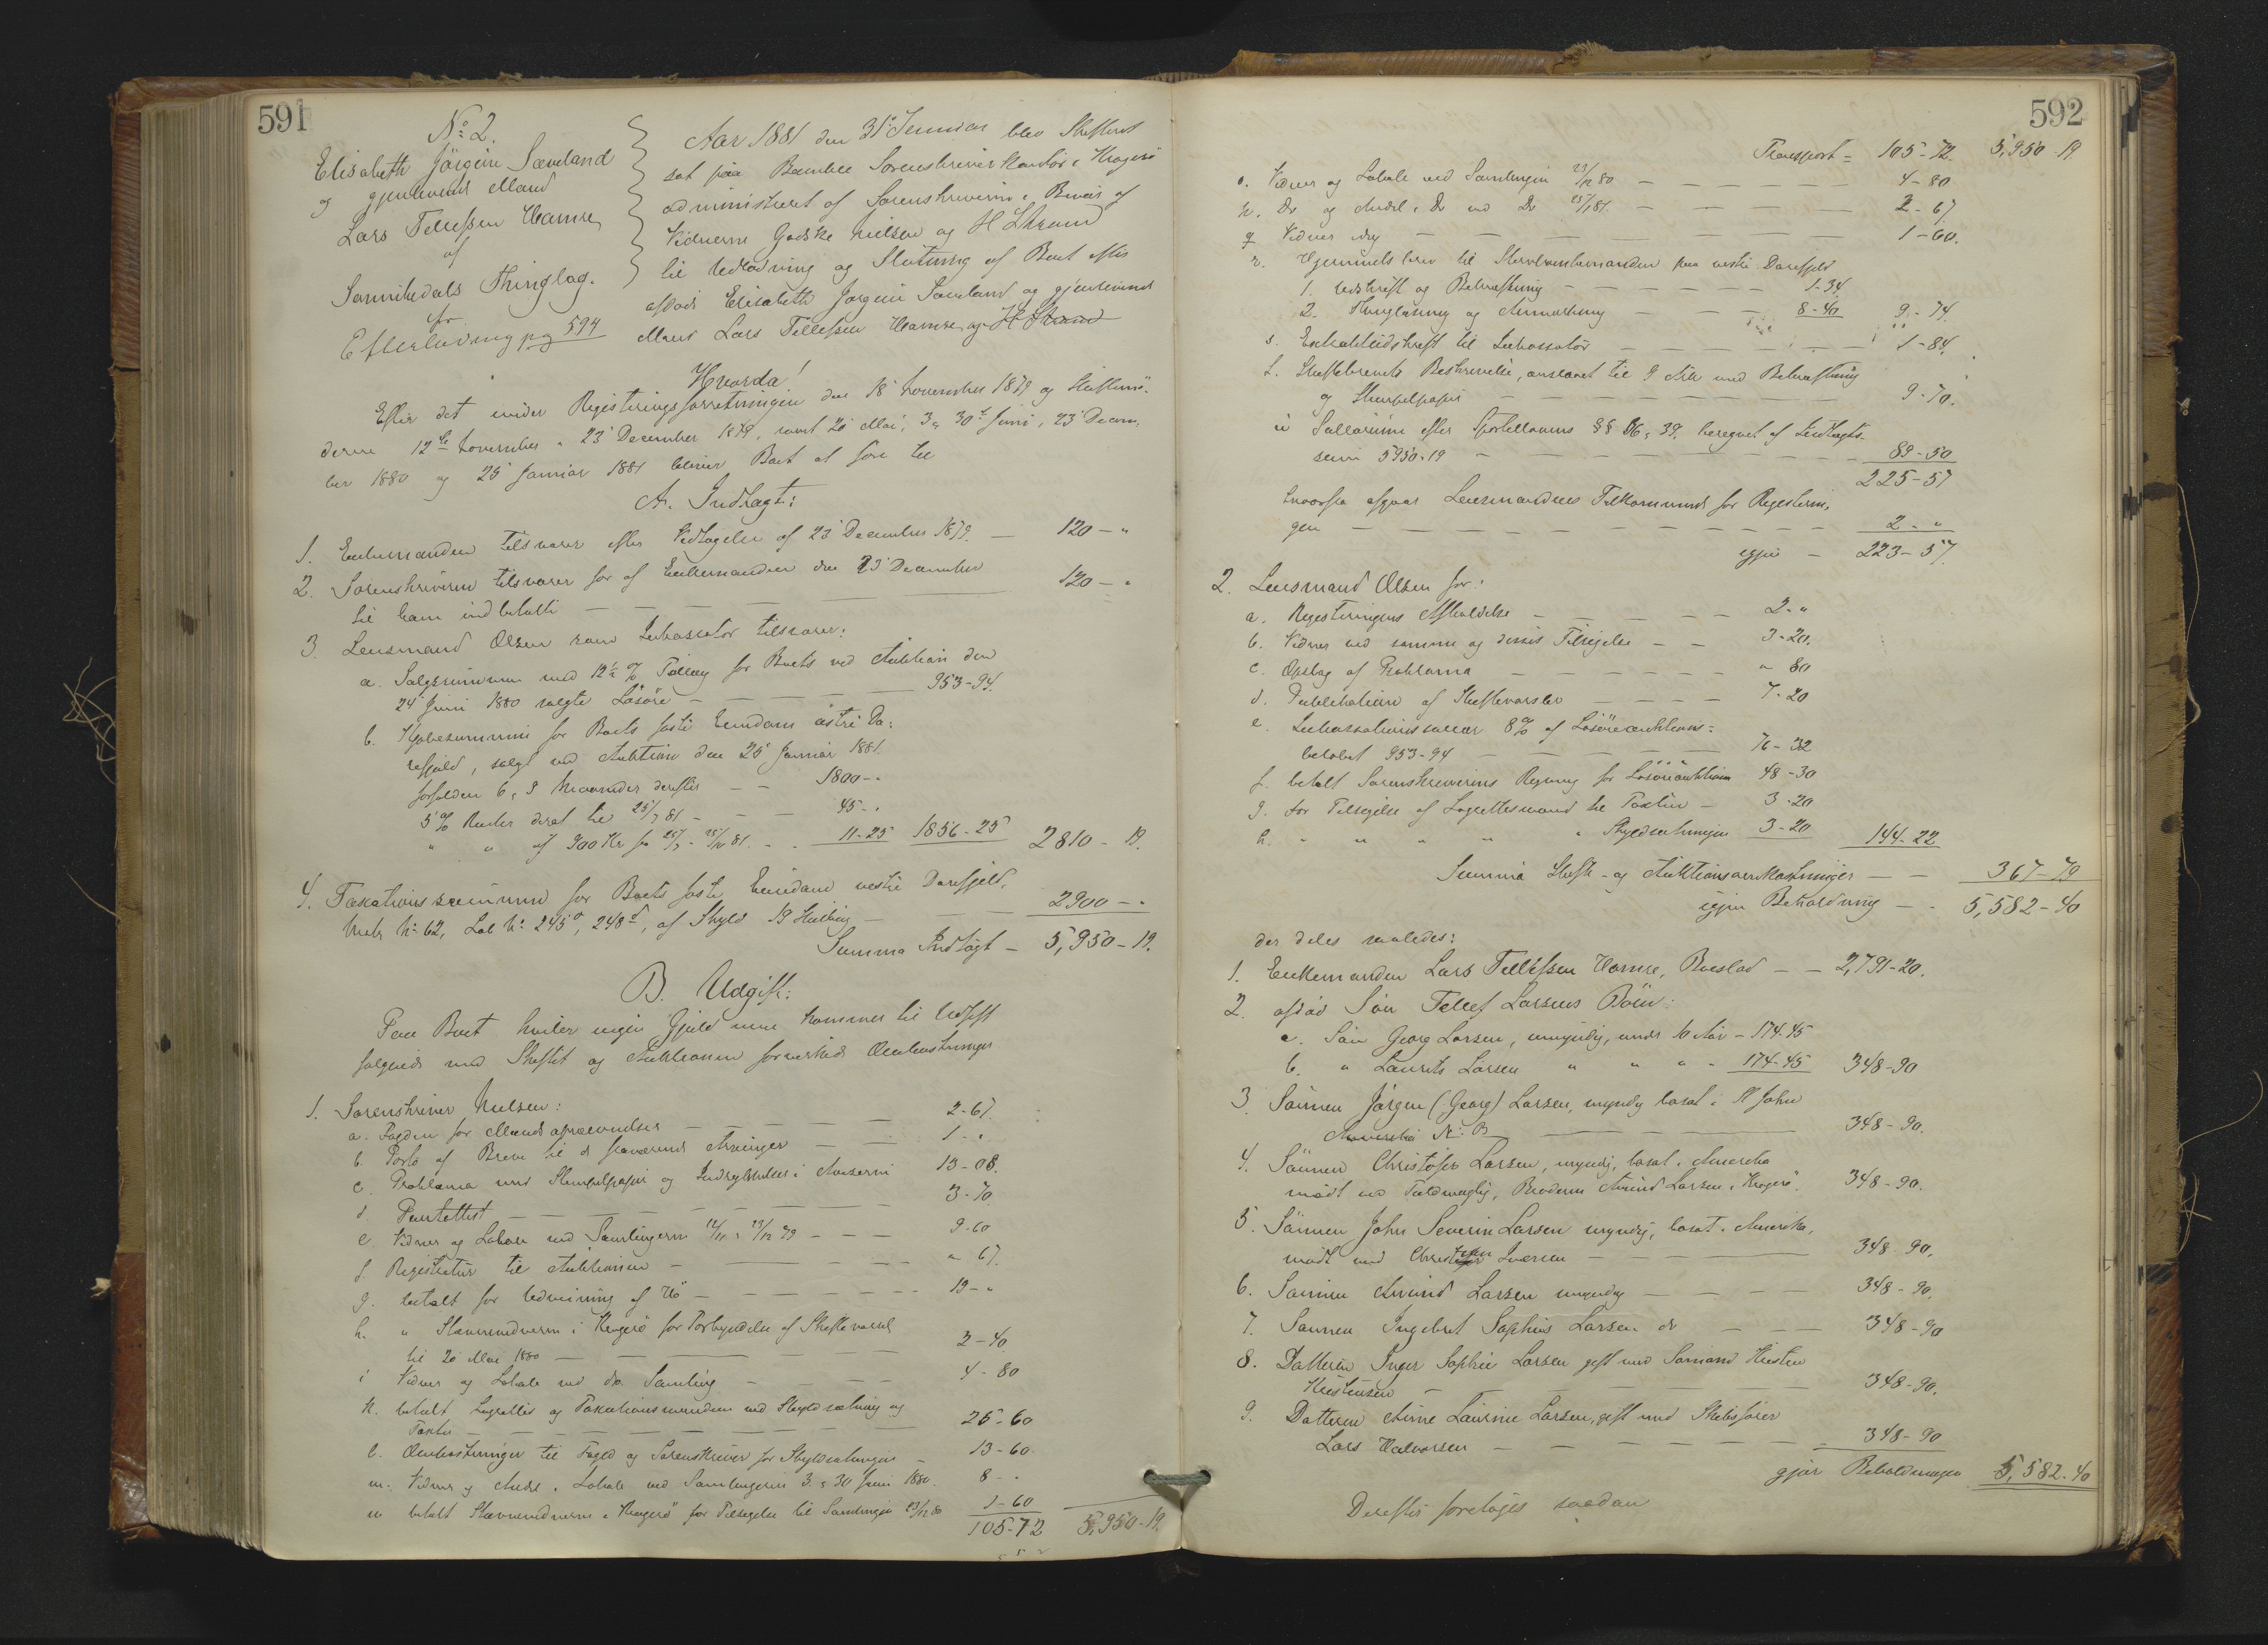 591
No 2.
Elisabeth Jörgine Sannland
og gjenlevende Mand
Lars Tellefsen Hamre
af
Sannikedals Thinglag.
fr
Efterlodning pg 594
Aar 1881 den 31te Januar blev Skifteret
sat paa Bamble Sorenskriverkontor i Kragerö
administreret af Sorenskriveren i Overvær af
Vidnerne Godske Nielsen og H Strand
til Udlodning og Slutning af Boet efter
afdöde Elisabeth Jörgine Sannland og gjenlevende
Mand Lars Tellefsen Hamre og H Strand
Hvorda!
Efter det under Registreringsforretningen den 18 November 1879 og Skiftemö-
derne 12te November, 23 December 1879, samt 20 Mai, 3 & 30te Juni, 23 Decem-
ber 1880 og 25 Januar 1881 bliver Boet at före til
A. Indtægt:
1. Enkemanden tilsvarer efter Vedtagelse af 23 December 1879. — 120 — "
2. Sorenskriveren tilsvarer for af Enkemanden den 23 December
til ham indbetalte — 120 — "
3. Lensmand Olsen som Inkassator tilsvarer:
a. Salgssummen med 12½ % Tillæg for Boets ved Auktion den
24 Juni 1880 solgte Lösöre — 953-94.
b. Kjöbesummen for Boets faste Eiendom östre Da-
refjeld, solgt ved Auktion den 25 Januar 1881.
forfalden 6 & 9 Maaneder derefter — 1800 - "
5 % Renter deraf til 25/7 81 — 45 - "
" " af 900 Kr fra 25/7 - 25/10 81. - 11-25 1856-25 2810 - 19.
4. Taxationssummen for Boets faste Eiendom vestre Darefjeld,
Matr No 62, Lob No 245a, 248d, af Skyld 19 Skilling — 2900 - "
Summa Indtægt — 5,950 - 19.
B. Udgift:
Paa Boet hviler ingen Gjæld men kommer til Udgift
fölgende med Skiftet og Auktionen forbundne Omkostninger
1. Sorenskriver Nielsen:
a. Fogden for Mands opnævnelser — 2-67.
b. Porto af Breve til de fraværende Arvinger — 1 - "
c. Proklama med Stempelpapir og Indrykkelser i Aviserne 13-08.
d. Pantattest — 3-70
e. Vidner og Lokale ved Samlingerne 12/11 & 23/12 79 — 9-60
f. Registratur til Auktionen — " 67.
g. betalt for Udvisning af Hö — 19 - "
h. " Stævnevidnerne i Kragerö for Forkyndelse af Skiftevarsel
til 20 Mai 1880 — 2-40
i Vidner og Lokale ved do Samling — 4-80
k. betalt Lagrettes og Taxationsmændene ved Skyldsætning og
Taxten — 25-60
l. Omkostninger til Foged og Sorenskriver for Skyldsætningen — 13-60.
m. Vidner og Andel i Lokale ved Samlingerne 3 & 30 Juni 1880. 8 - "
n betalt Stævnevidnerne i Kragerö for Tilsigelse til Samlingen 23/12 80 1-60
105-72 5,950-19.
592
Transport = 105-72. 5,950-19.
o. Vidner og Lokale ved Samlingen 23/12 80 — 4-80
p. Do og Andel i Do ved Do 25/1 81. — 2-67.
q Vidner idag — 1-60.
r. Hjemmelsbrev til Stervboenkemanden paa vestre Darefjeld
1. Udskrift og Bekræftning — 1-34
2. Thinglæsning og Anmærkning — 8-40 9-74.
s. Extraktudskrift til Inkassator — 1-84.
t. Skiftebrevets Beskrivelse, anslaaet til 9 Ark med Bekræftning
og Stempelpapir — 9-70.
u Sallarium efter Sportellovens §§ 36, 39. beregnet af Indtægts-
sum 5950-19 — 89-50
225-57
hvorfra afgaar Lensmandens Tilkommende for Registerin-
gen — 2 - "
igjen — 223-57.
2. Lensmand Olsen for:
a. Registeringens Afholdelse — 2 - "
b. Vidner ved samme og dennes Tilsigelse — 3-20.
c. Opslag af Proklama — " 80
d. Publikation af Skiftevarsler — 7-20
e. Inkassationssallær 8 % af Lösöreauktions-
belöbet 953-94 — 76-32
f. betalt Sorenskriverens Regning for Lösöreauktion 48-30
g. for Tilsigelse af Lagrettesmænd til Taxten — 3-20
h. " " " " " Skyldsætningen 3-20 144-22
Summa Skifte- og Auktionsomkostninger — 367-79
igjen Beholdning — 5,582-40
der deles saaledes:
1. Enkemanden Lars Tellefsen Hamre, Boeslod — 2,791-20.
2. afdöd Sön Tellef Larsens Börn:
a. Sön Georg Larsen, umyndig, under 16 Aar - 174-45
b. " Laurits Larsen " " " - 174-45 348-90
3. Sönnen Jörgen (Georg) Larsen, myndig bosat i St John
Amerika N: B — 348-90.
4. Sönnen Christofer Larsen, myndig, bosat i Amerika
mödt ved Fuldmægtig, Broderen Amund Larsen i Kragerö. 348-90.
5. Sönnen John Severin Larsen myndig, bosat i Amerika,
mödt ved Christen Iversen — 348-90.
6. Sönnen Amund Larsen myndig — 348-90.
7. Sönnen Ingebret Sophus Larsen do — 348-90
8. Datteren Inger Sophie Larsen gift med Sömand Kristen
Kristensen — 348-90.
9. Datteren Anne Laurine Larsen, gift med Skibsförer
Lars Halvorsen — 348-90
gjör Beholdningen 5,582-40
Derefter foretoges saadan